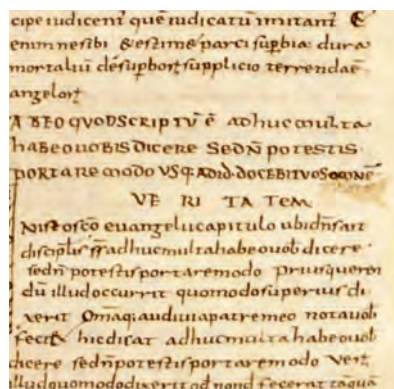 cipe iudicent quē iudicatū imitant &
enim nesibi & estim& parci sup̄bia dura
mortaliū de sup̄borꝝ supplicio terrendaē
angelorꝝ
AB EO QUOD SCRIPTŪ Ē adhuc multa
habeo vobis dicere sed n̄ potestis
portare modo usq: ad id· docebit vos omnē
VE RI TA TEM
Nisto scō evangelii capitulo ubi dn̄s ait
discipulis suis adhuc multa habeo vob dicere
sed n̄ potestis portare modo prius queren
dū illud occurrit quomodo superius di
xerit Omaq: audivi a patre meo nota vob
feci& hic dicat adhuc multa habeo vob
dicere sed n̄ potestis portare modo Verū
illud quomodo dixerit qd nond fecerat tāquā